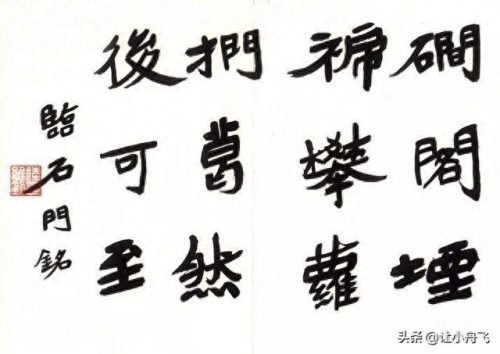 磵閣堙
褫攀蘿
捫葛然
後可至
臨石門銘
头条 @让小舟飞